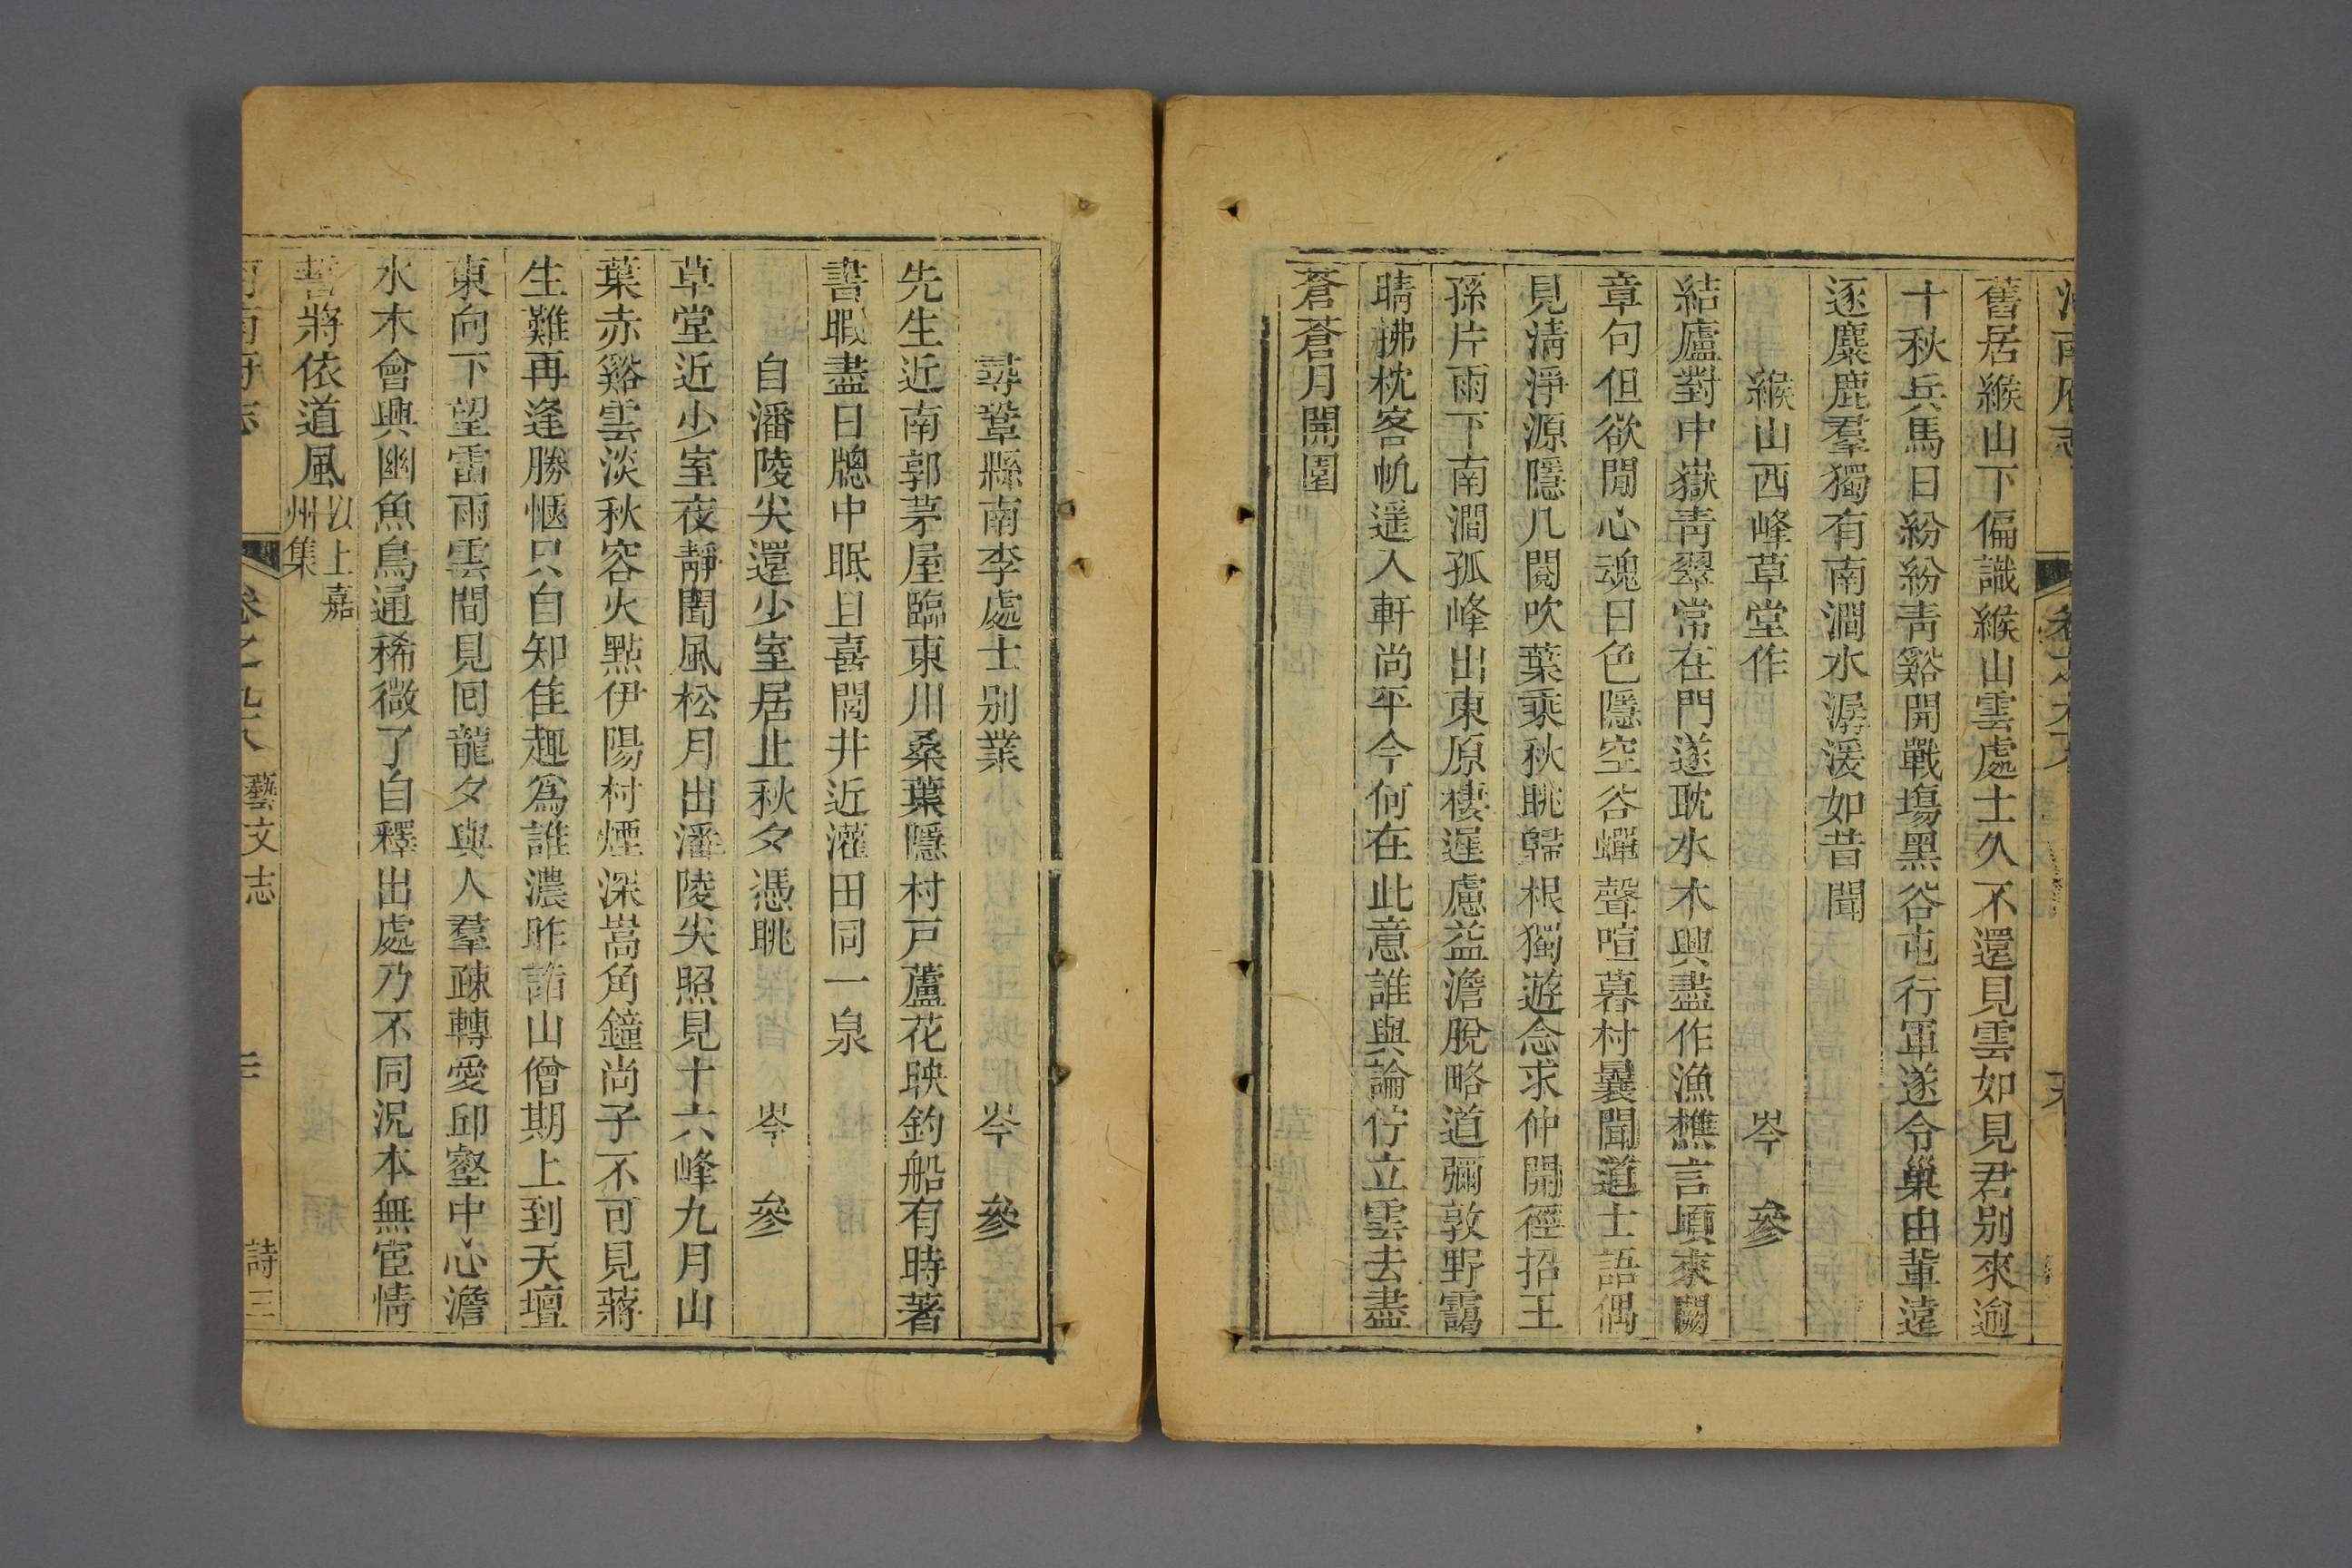 舊居緱山下偏識緱山雲處士久不還見雲如見君别來逾
十秋兵馬日紛紛青谿開戰塲黑谷屯行軍遂令巢由輩遠
逐麋鹿羣獨有南澗水潺湲如昔聞
緱山西峰草堂作 岑參
結廬對中嶽青翠常在門遂耽水木興盡作漁樵言頃來闕
章句但欲閒心魂日色隱空谷蟬聲喧暮村曩聞道士語偶
見清淨源隱几閱吹葉乘秋眺歸根獨遊念求仲開徑招王
孫片雨下南澗孤峰出東原棲遲慮益澹脫略道彌敦野靄
晴拂枕客帆遥入軒尚平今何在此意誰與論佇立雲去盡
蒼蒼月開園
尋鞏縣南李處士别業 岑參
先生近南郭茅屋臨東川桑葉隱村戸蘆花映釣船有時著
書暇盡日牕中眠且喜閭井近灌田同一泉
自潘陵尖還少室居止秋夕憑眺 岑參
草堂近少室夜靜聞風松月出潘陵尖照見十六峰九月山
葉赤谿雲淡秋容火點伊陽村煙深嵩角鐘尚子不可見蔣
生難再逢勝愜只自知佳趣爲誰濃昨詣山僧期上到天壇
東向下望雷雨雲間見囘龍夕與人羣疎轉愛邱壑中心澹
水木會興幽魚鳥通稀微了自釋出處乃不同況本無宦情
誓將依道風以上嘉州集
藝文志 詩三